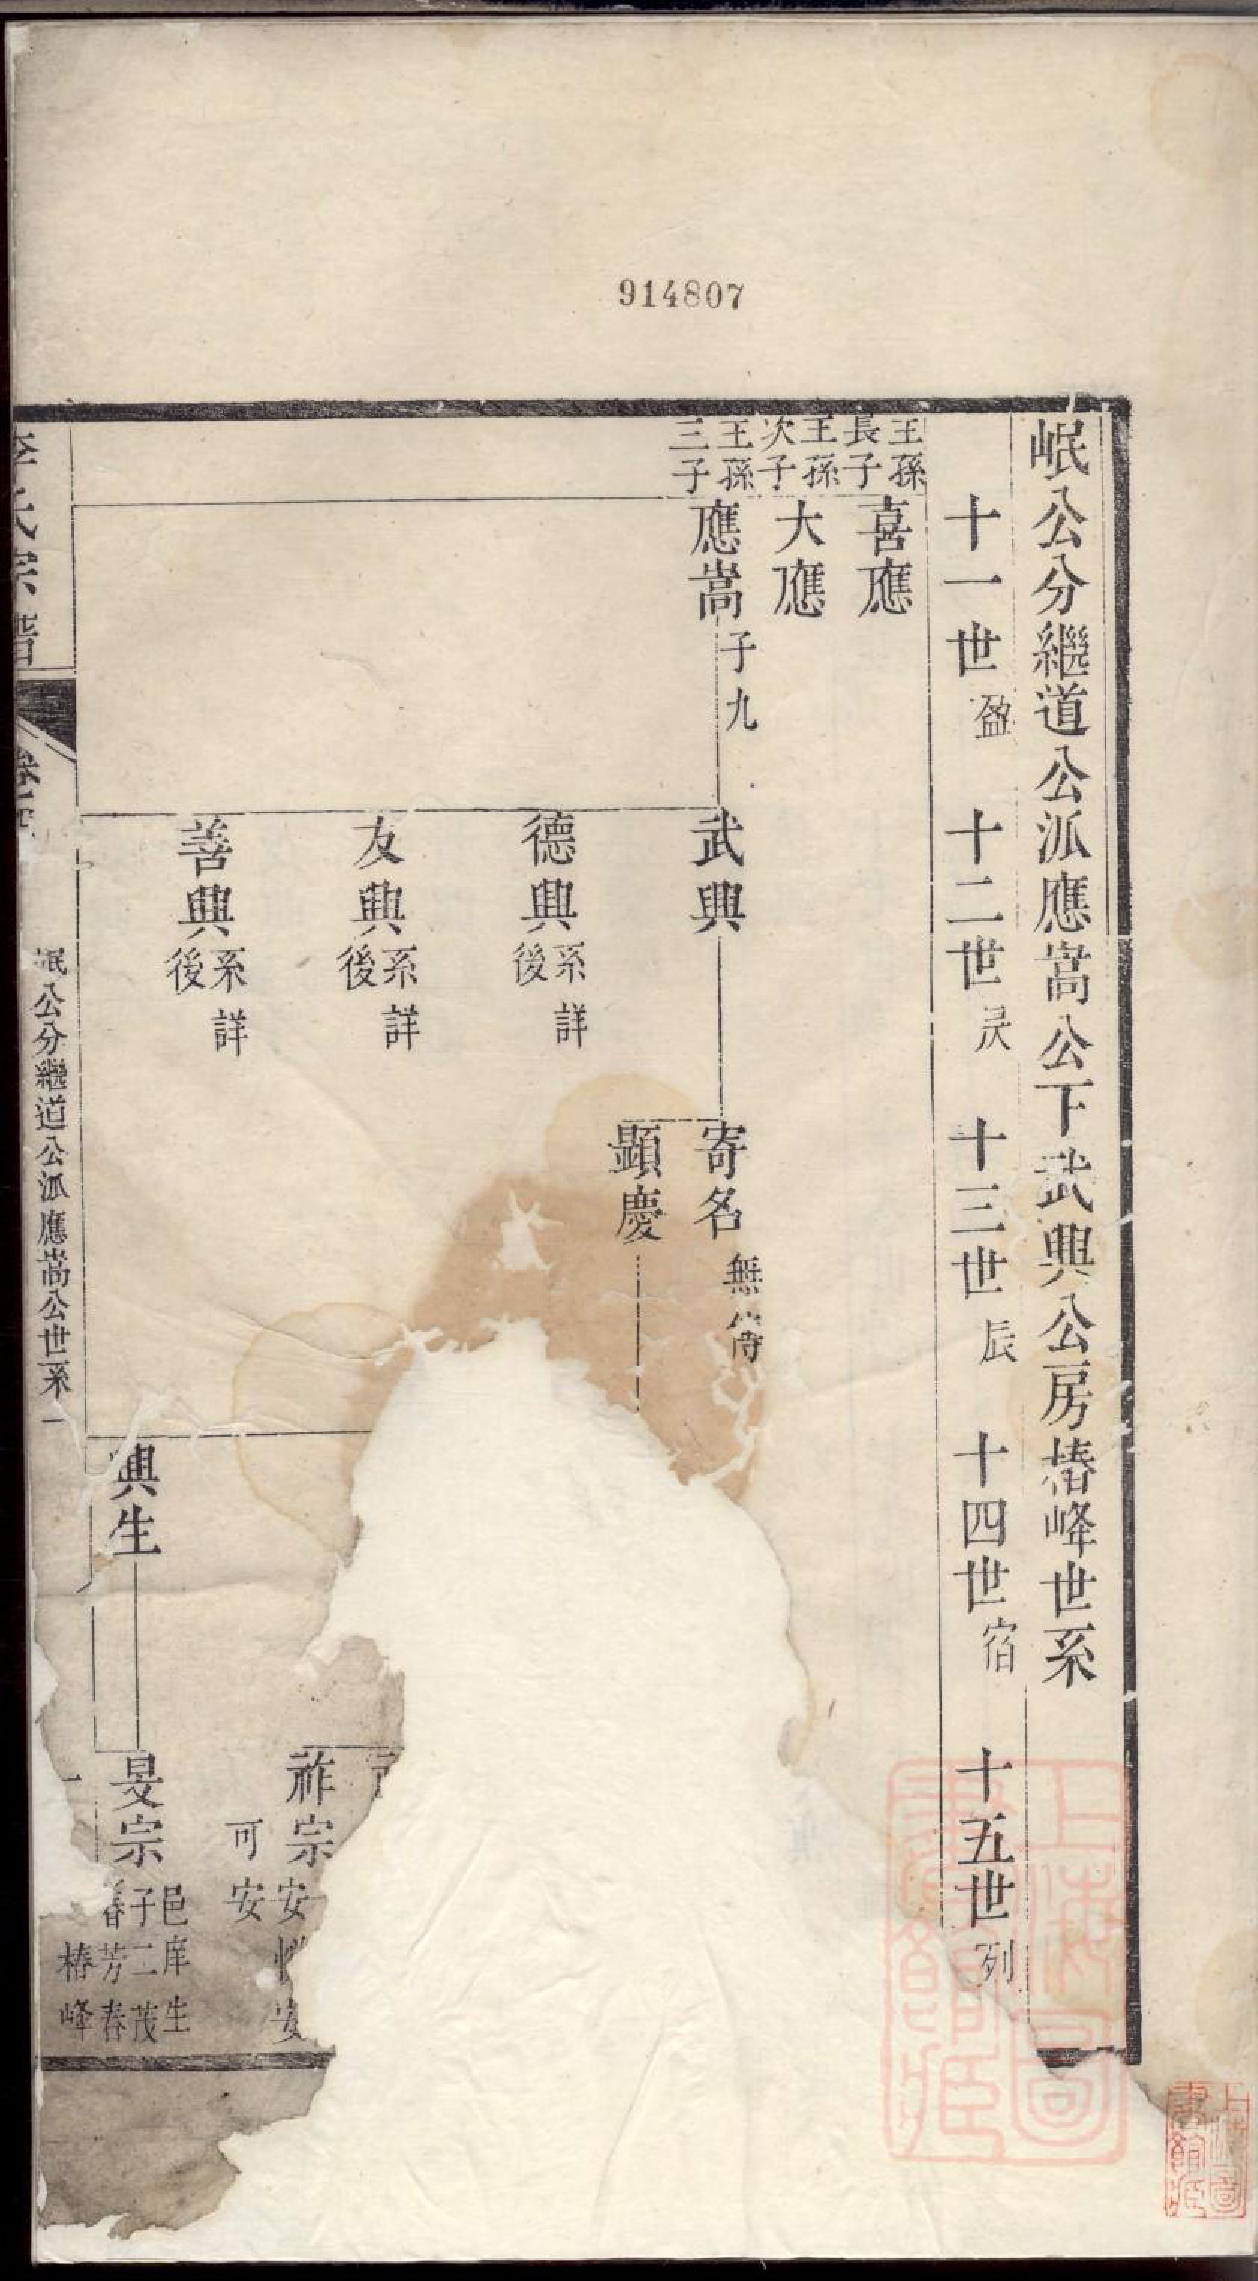 914807
岷公分繼道公派應嵩公下武興公房椿峰世系
十一世盈 十二世昃 十三世辰 十四世宿 十五世列
王孫長子
喜應
王孫次子
大應
王孫三子
應嵩 子九
武興
德興 系詳後
友興 系詳後
善興 系詳後
寄名 無嗣
顯慶
興生
祚宗 安 安
可安
旻宗 邑庠生
子二茂
春芳春
椿峰
李氏宗譜
岷公分繼道公派應嵩公世系 一
上海圖書館藏
上海圖書館藏